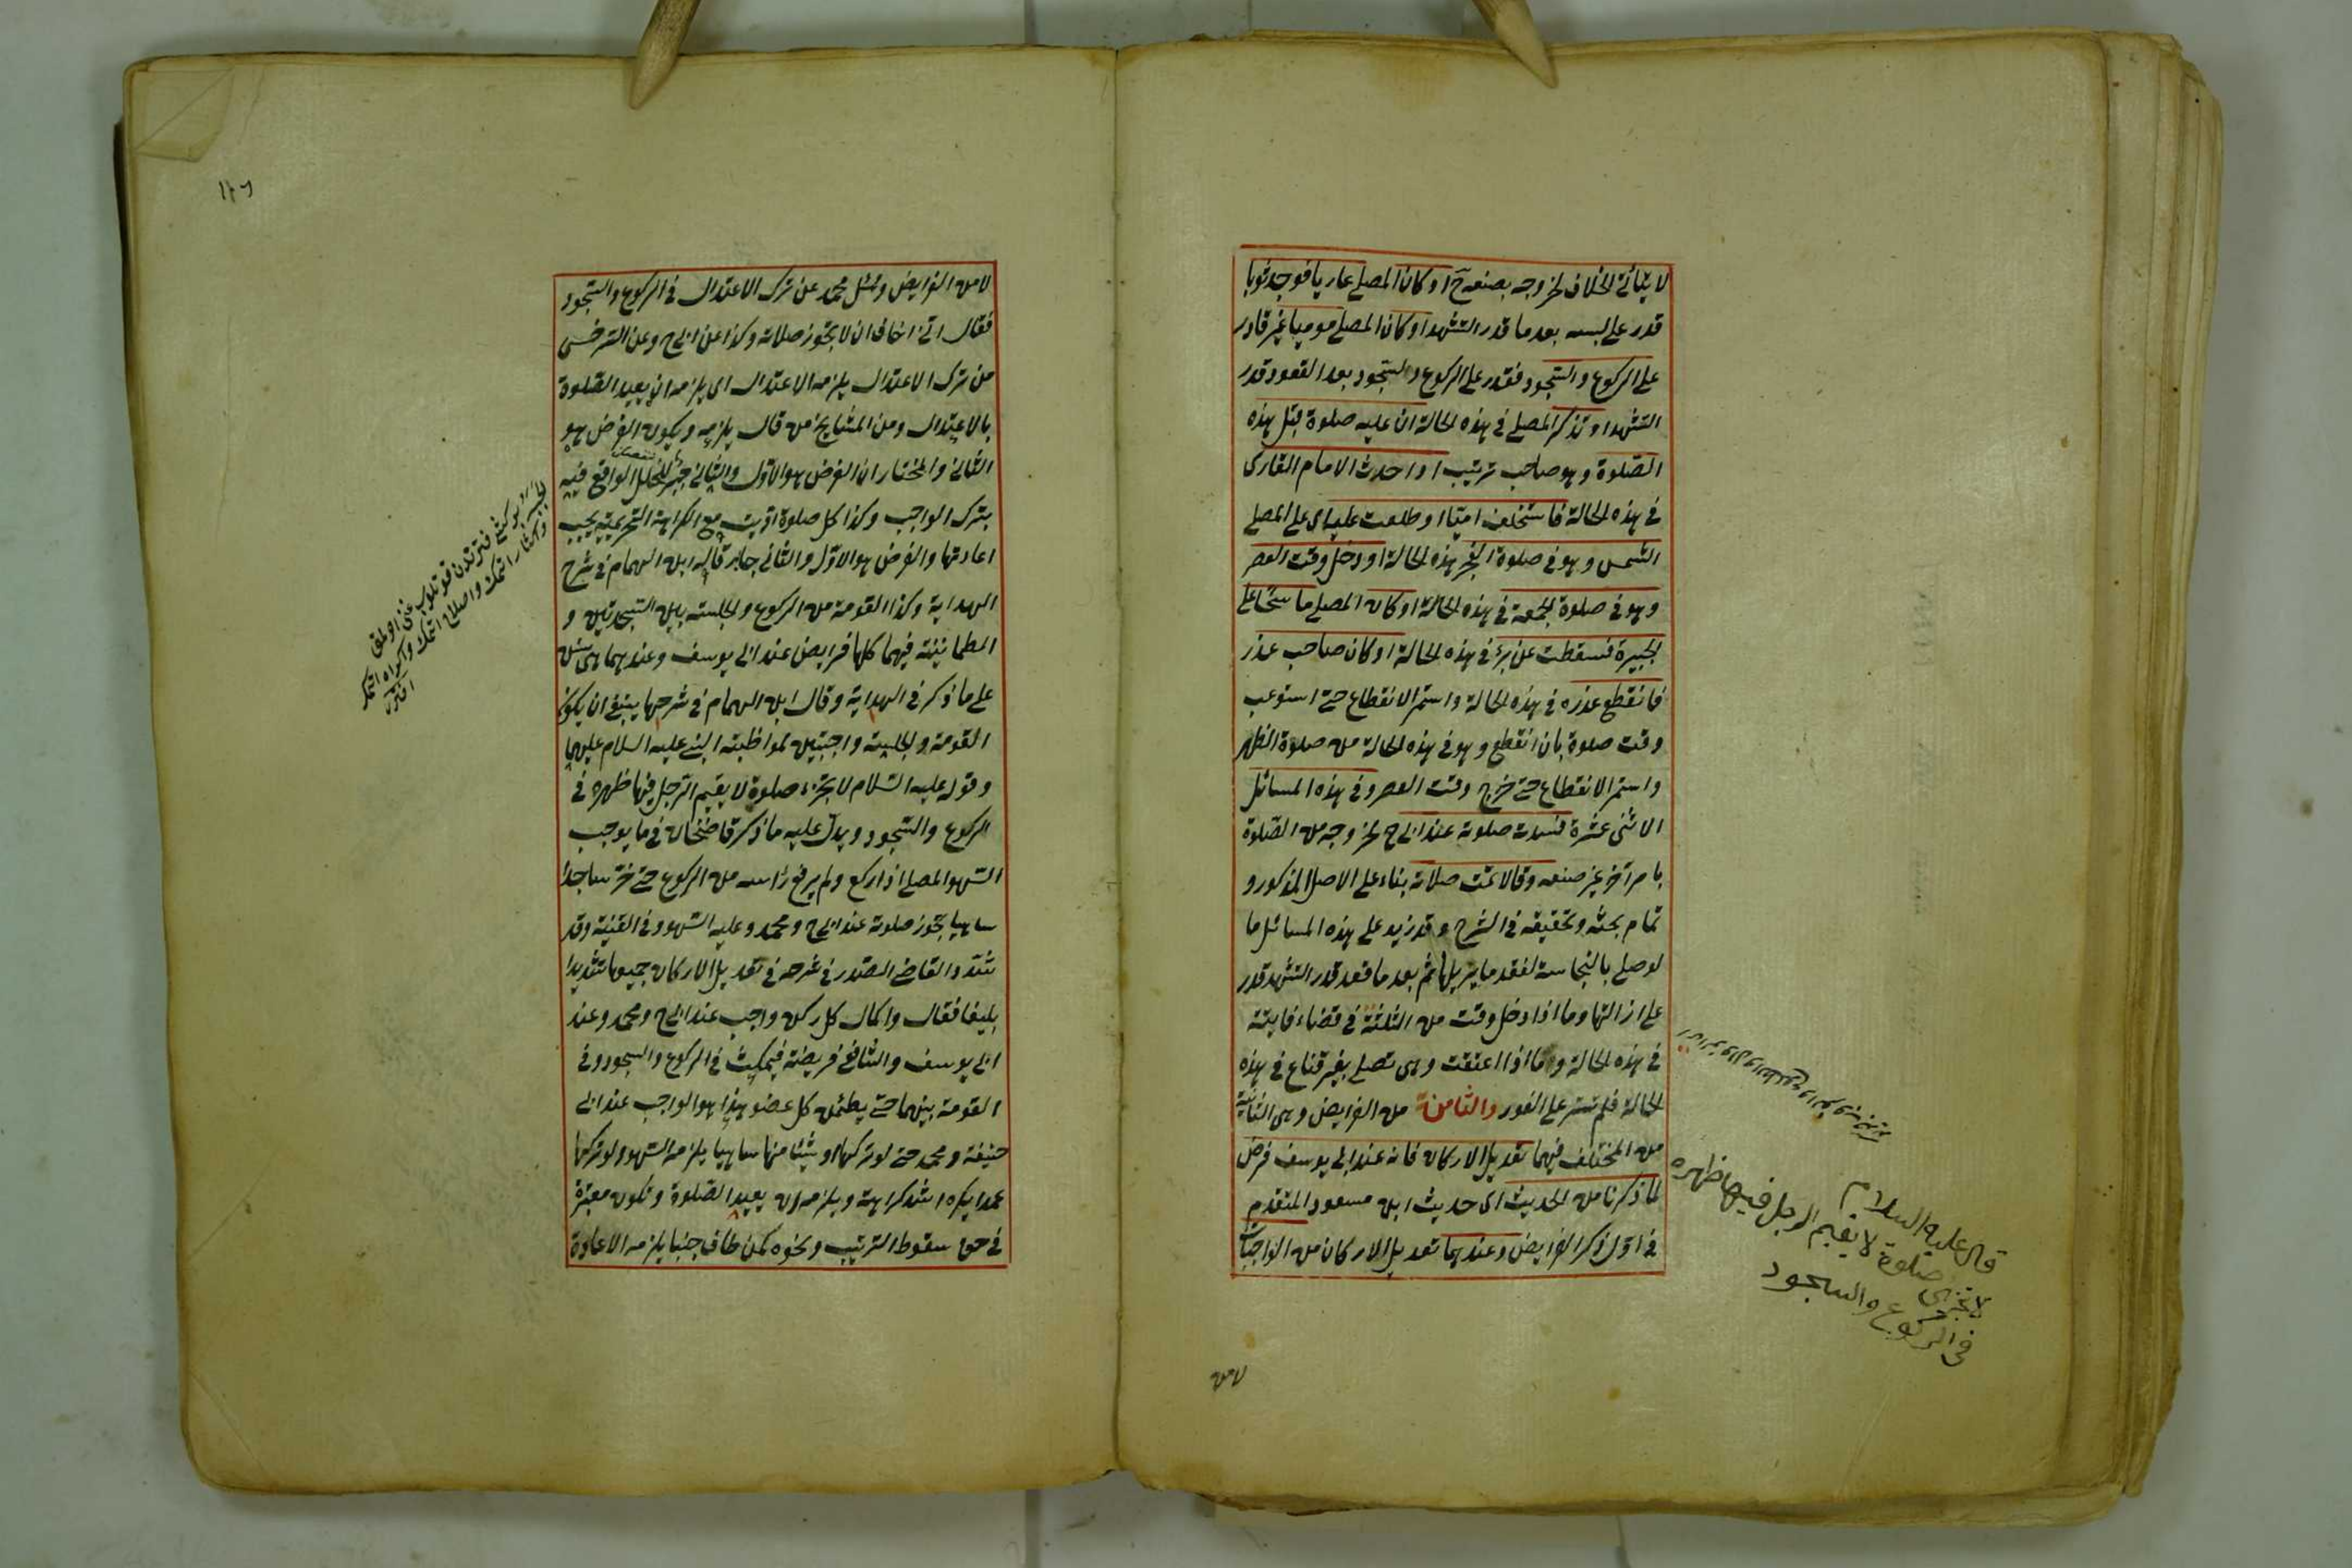 لا يتأتى الخلاف لخروجه بصنعه ح او كان المصلى عاريا فوجد ثوبا
قدر على لبسه بعد ما قدر التشهد او كان المصلى موميا غير قادر
على الركوع والسجود فقدر على الركوع والسجود بعد القعود قدر
التشهد او تذكر المصلى فى هذه الحالة ان عليه صلوة قبل هذه
الصلوة وهو صاحب ترتيب او احدث الامام القارى
فى هذه الحالة فاستخلف اميّا او طلعت عليه اى على المصلى
الشمس وهو فى صلوة الفجر هذه الحالة او دخل وقت العصر
وهو فى صلوة الجمعة فى هذه الحالة او كان المصلى ماسحا على
الجبيرة فسقطت عن برء فى هذه الحالة او كان صاحب عذر
فانقطع عذره فى هذه الحالة واستمر الانقطاع حتى استوعب
وقت صلوة بان انقطع وهو فى هذه الحالة من صلوة الظهر
واستمر الانقطاع حتى خرج وقت العصر وفى هذه المسائل
الاثنى عشرة فسدت صلوته عند ابى ح لخروجه من الصلوة
بامر آخر غير صنعه وقالا تمت صلاته بناء على الاصل المذكور و
تمام بحثه وتحقيقه فى الشرح وقد زيد على هذه المسائل ما
لو صلى بالنجاسة لفقد ما يزيلها ثم بعد ما قعد قدر التشهد قدر
على ازالتها وما اذا دخل وقت من الثلثة فى قضاء فايتة
فى هذه الحالة وما اذا اعتقت وهى تصلى بغير قناع فى هذه
الحالة فلم تستر على الفور والثامنة من الفرايض وهى الثانية
من المختلف فيهما تعديل الاركان فانه عند ابى يوسف فرض
لما ذكرنا من الحديث اى حديث ابن مسعود المتقدم
فى اول ذكر الفرايض وعندهما تعديل الاركان من الواجبات
قال عليه السلام
لا تجزى صلوة لا يقيم الرجل فيها ظهره
فى الركوع والسجود
لا من
١٢٦
لا من الفرايض وسئل محمد عن ترك الاعتدال فى الركوع والسجود
فقال انى اخاف ان لا تجوز صلاته وكذا عن ابى ح وعن السرخسى
من ترك الاعتدال يلزمه الاعتدال اى يلزمه ان يعيد الصلوة
بالاعتدال ومن المشايخ من قال يلزمه ويكون الفرض هو
الثانى والمختار ان الفرض هو الاول والثانى جبر للخلل الواقع فيه
بترك الواجب وكذا كل صلوة اديت مع الكراهة التحريمية يجب
اعادتها والفرض هو الاول والثانى جابر قاله ابن الهمام فى شرح
الهداية وكذا القومة من الركوع والجلسة بين السجدتين و
الطمانينة فيهما كلها فرايض عند ابى يوسف وعندهما هى سنن
على ما ذكر فى الهداية وقال ابن الهمام فى شرحها ينبغى ان يكون
القومة والجلسة واجبتين لمواظبته النبى عليه السلام عليهما
وقوله عليه السلام لا تجزء صلوة لا يقيم الرجل فيها ظهره فى
الركوع والسجود ويدل عليه ما ذكر قاضخان فى ما يوجب
السهو المصلى اذا ركع ولم يرفع راسه من الركوع حتى خر ساجدا
ساهيا تجوز صلوته عند ابى ح ومحمد وعليه السهو وفى القنية وقد
شدد القاضى الصدر فى شرحه فى تعديل الاركان جميعها تشديدا
بليغا فقال واكمال كل ركن واجب عند ابى ح ومحمد وعند
ابى يوسف والشافعى فريضة فيمكث فى الركوع والسجود وفى
القومة بينهما حتى يطمئن كل عضو هذا هو الواجب عند ابى
حنيفة ومحمد حتى لو تركها او شيئا منها ساهيا يلزمه السهو ولو تركها
عمدا يكره اشد كراهة ويلزمه ان يعيد الصلوة وتكون معتبرة
فى حق سقوط الترتيب ونحوه كمن طاف جنبا يلزمه الاعادة